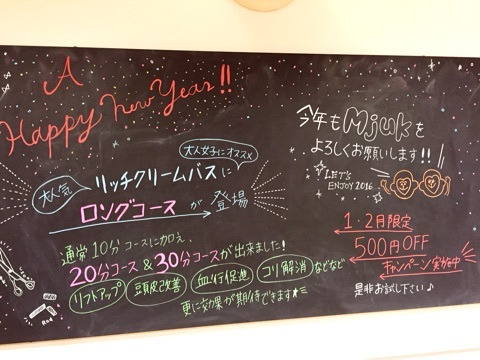 A
Happy New Year!!
大人女子にオススメ
大人気
リッチクリームバスに
ロングコース が 登場
通常10分コースに加え、
20分コース & 30分コースが出来ました!
リフトアップ 頭皮改善 血行促進 コリ解消 などなど
更に効果が期待できます★
今年もMjukを
よろしくお願いします!!
LET'S
ENJOY 2016
1・2月限定
500円OFF
キャンペーン実施中
是非お試し下さい♪